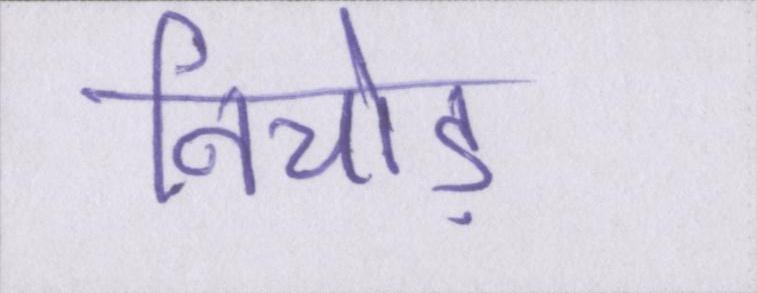 निचोड़